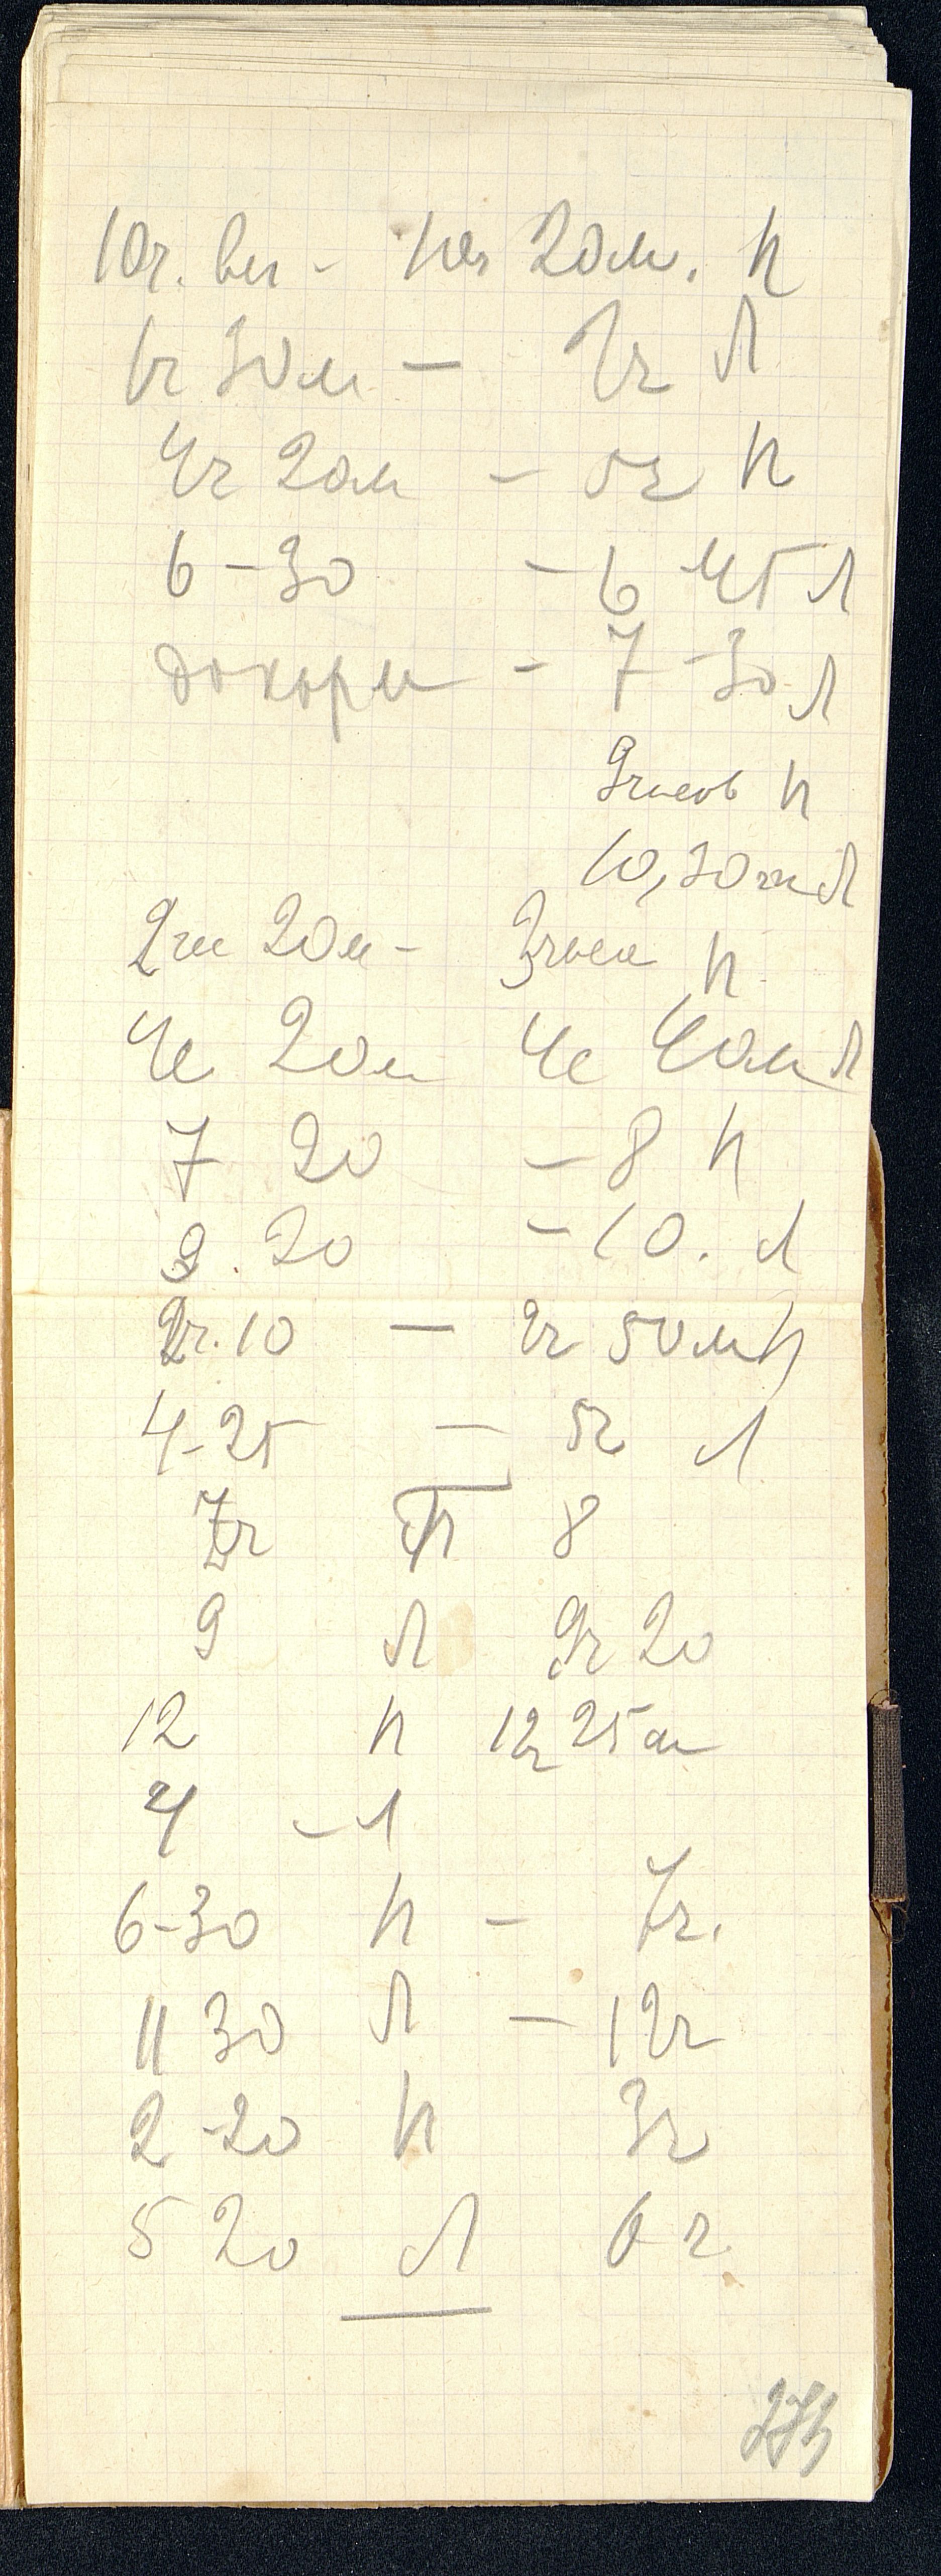 10ч. веч - 10ч 20м. П
1ч 30м - 2ч Л
4ч 20м - 5ч П
6-30 - 6 45 Л
докорм - 7-30 Л
9часов П
10,30м Л
2ч 20м - 3часа П
4ч 20м 4ч 40м Л
7 20 - 8 П
9. 20 - 10. Л
2ч.10 - 2ч 50м П
4-25 - 5ч Л
7ч П 8
9 Л 9ч 20
12 П 12ч 25м
4 - Л
6-30 П - 7ч.
11 30 Л - 12ч
2-20 П 3ч
5 20 Л 6ч